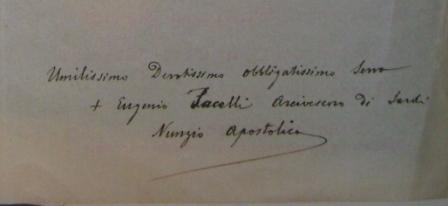 Umilissimo Devotissimo Obbligatissimo Servo
+ Eugenio Pacelli Arcivescovo di Sardi
Nunzio Apostolico